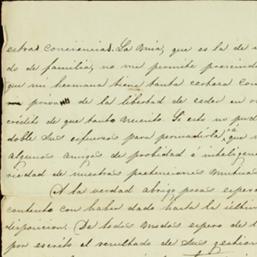 estras conciencias. La mia, que es la de a
do de familia, no me permite prescindi
que mi hermana tiene tanta certera con
priva de la libertad de ceder en o
crédito de que tanto necesito. Si esto no pud
doble sus esfuerzos para persuadirla, que
algunos amigos de probidad é inteligen
riedad de nuestras pretensiones mutuas
A la verdad abrigo pocas espera
contento con haber dado hasta la últim
disposicion. De todos modos espero de
por escrito el resultado de sus gestion